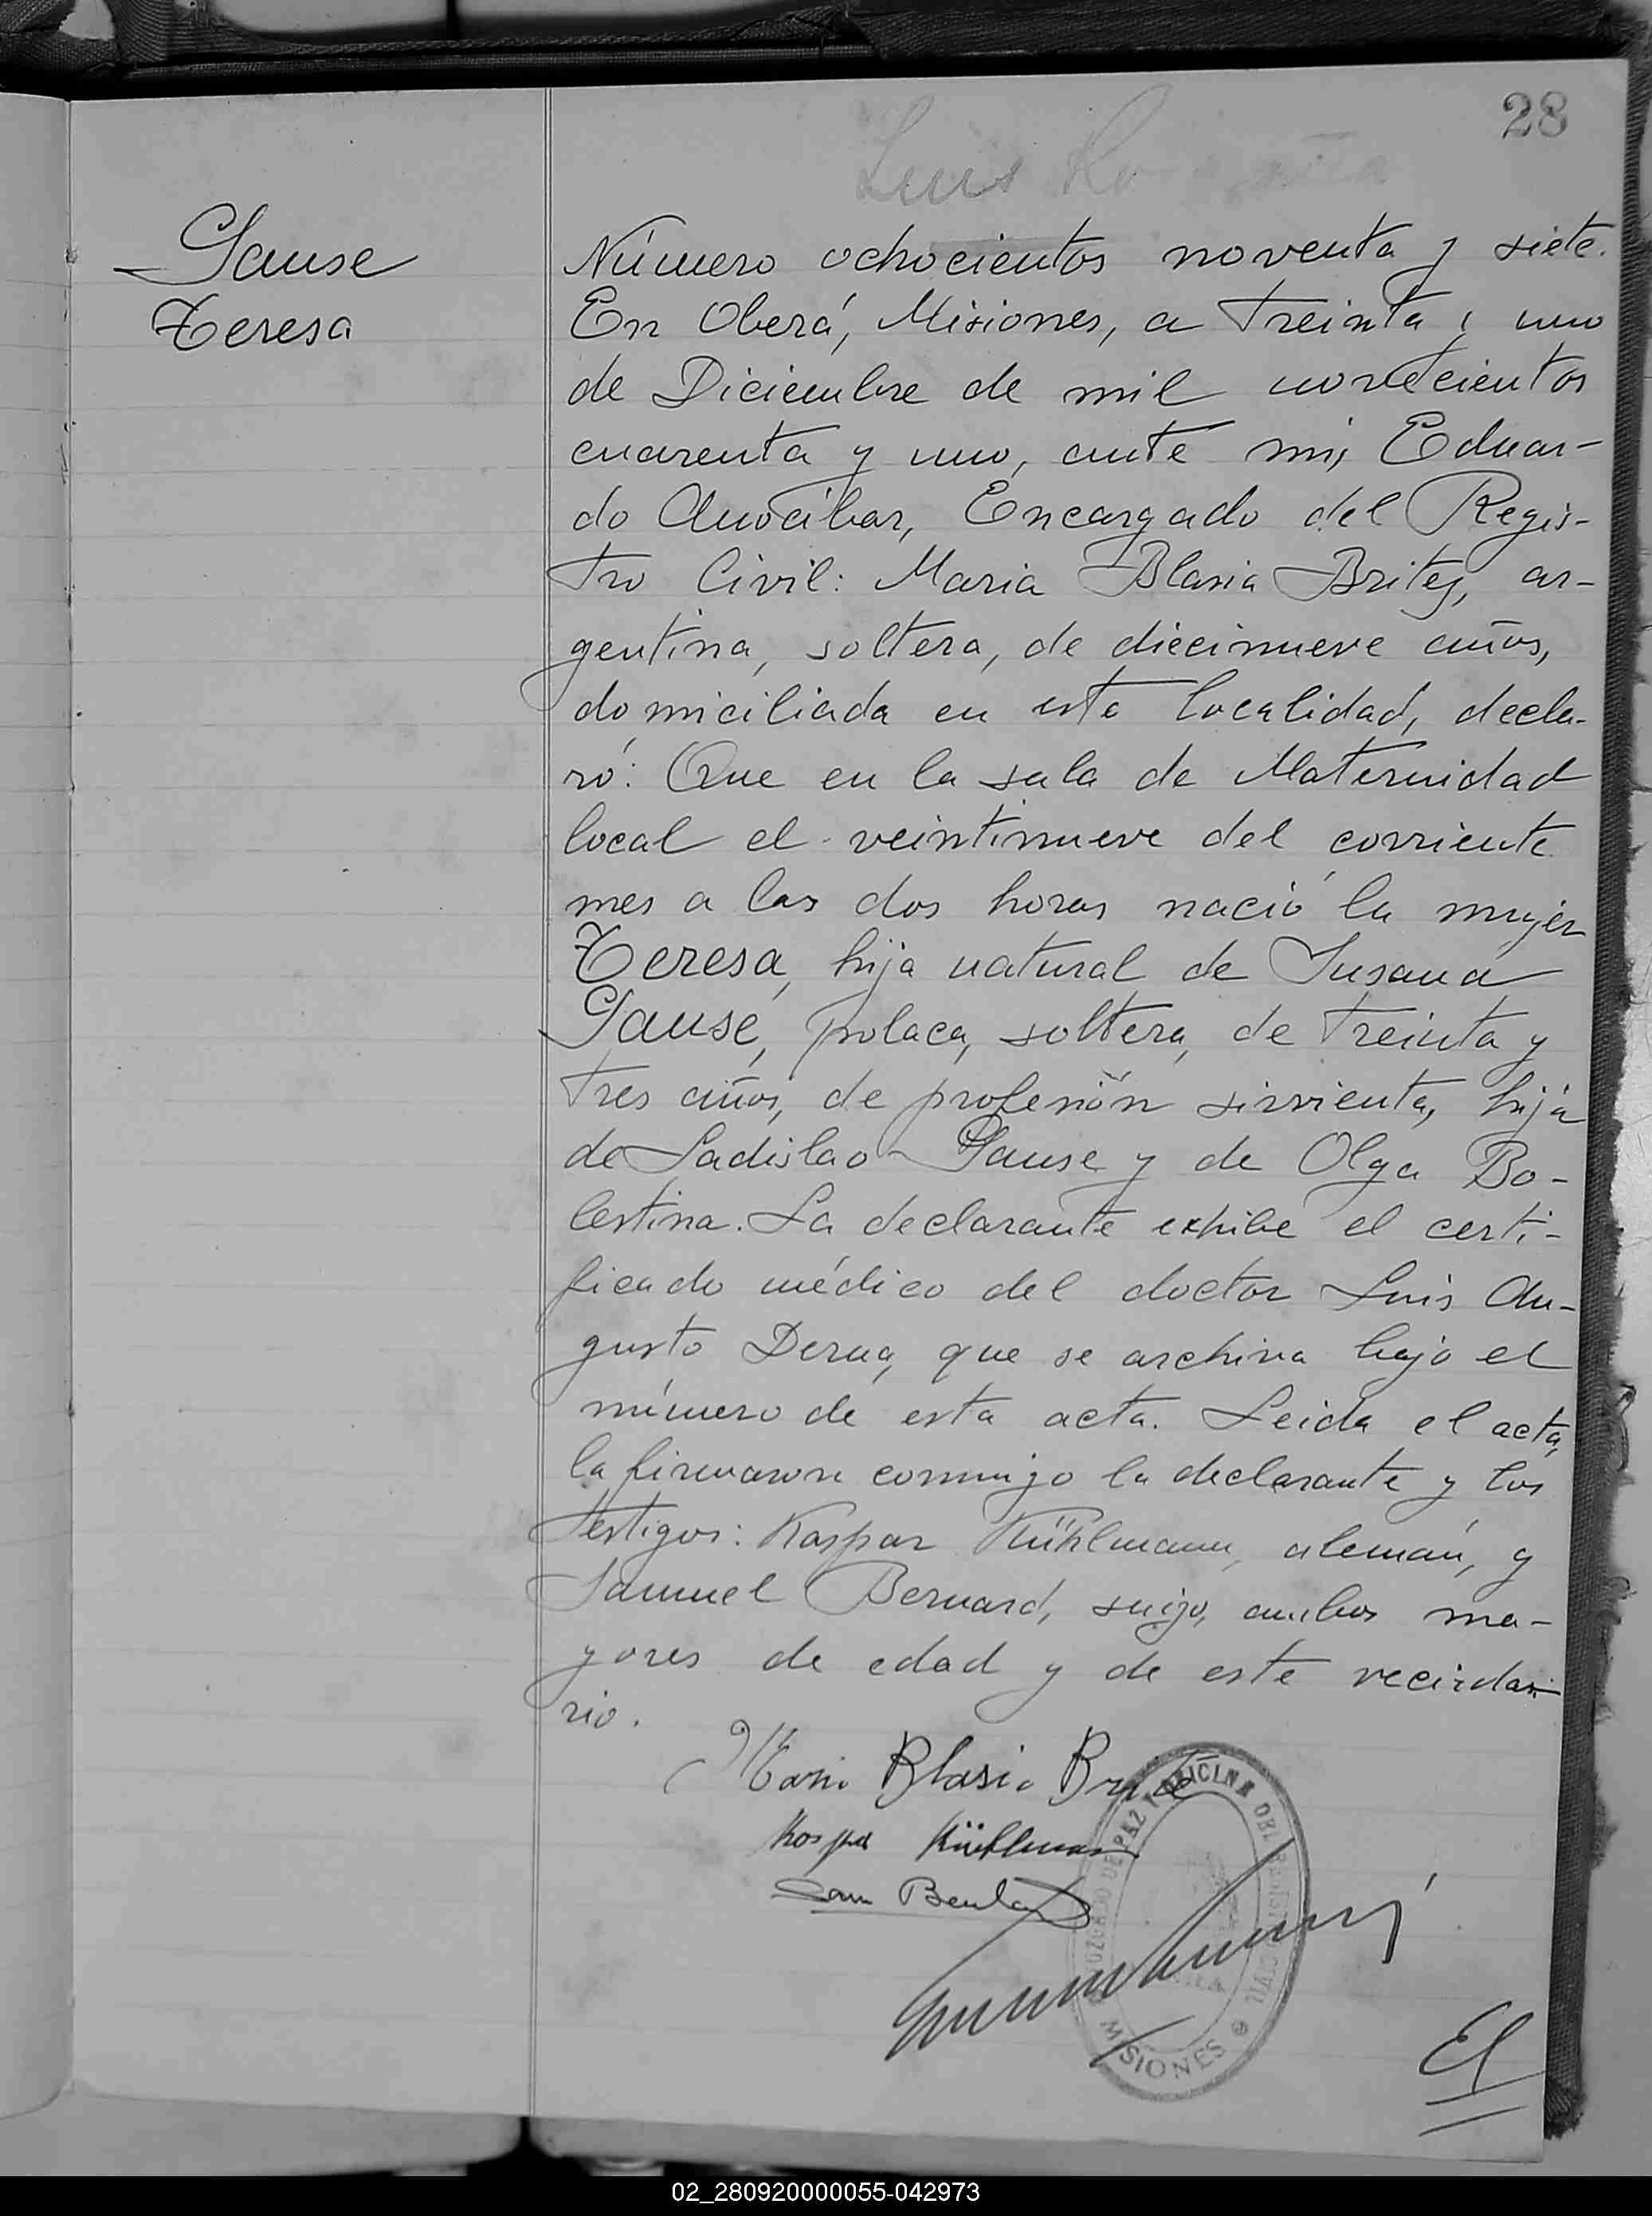 28
Luis
Gause
Teresa
Número ochocientos noventa y siete.
En Oberá, Misiones, a treinta y uno
de Diciembre de mil novecientos
cuarenta y uno, ante mi, Eduar-
do Amocibar, Encargado del Regis-
tro Civil: Maria Blasia Britez, ar-
gentina, soltera, de diecinueve años,
domiciliada en esta localidad, decla-
ró: Que en la sala de Maternidad
local el veintinueve del corriente
mes a las dos horas nació la mujer
Teresa, hija natural de Susana
Gause, polaca, soltera, de treinta y
tres años, de profesión sirvienta, hija
de Ladislao Gause y de Olga Bo-
lestina. La declarante exhibe el certi-
ficado médico del doctor Luis Au-
gusto Derna, que se archiva bajo el
número de esta acta. Leida el acta,
la firmaron conmigo la declarante y los
testigos: Kaspar Kühlmann, alemán, y
Samuel Bernard, suizo, ambos ma-
yores de edad y de este vecinda-
rio.
Maria Blasia Brite
Kaspar Kühlmann
Sam
JUZGADO DE PAZ Y OFICINA DEL REGISTRO CIVIL
MISIONES
El
02_280920000055-042973